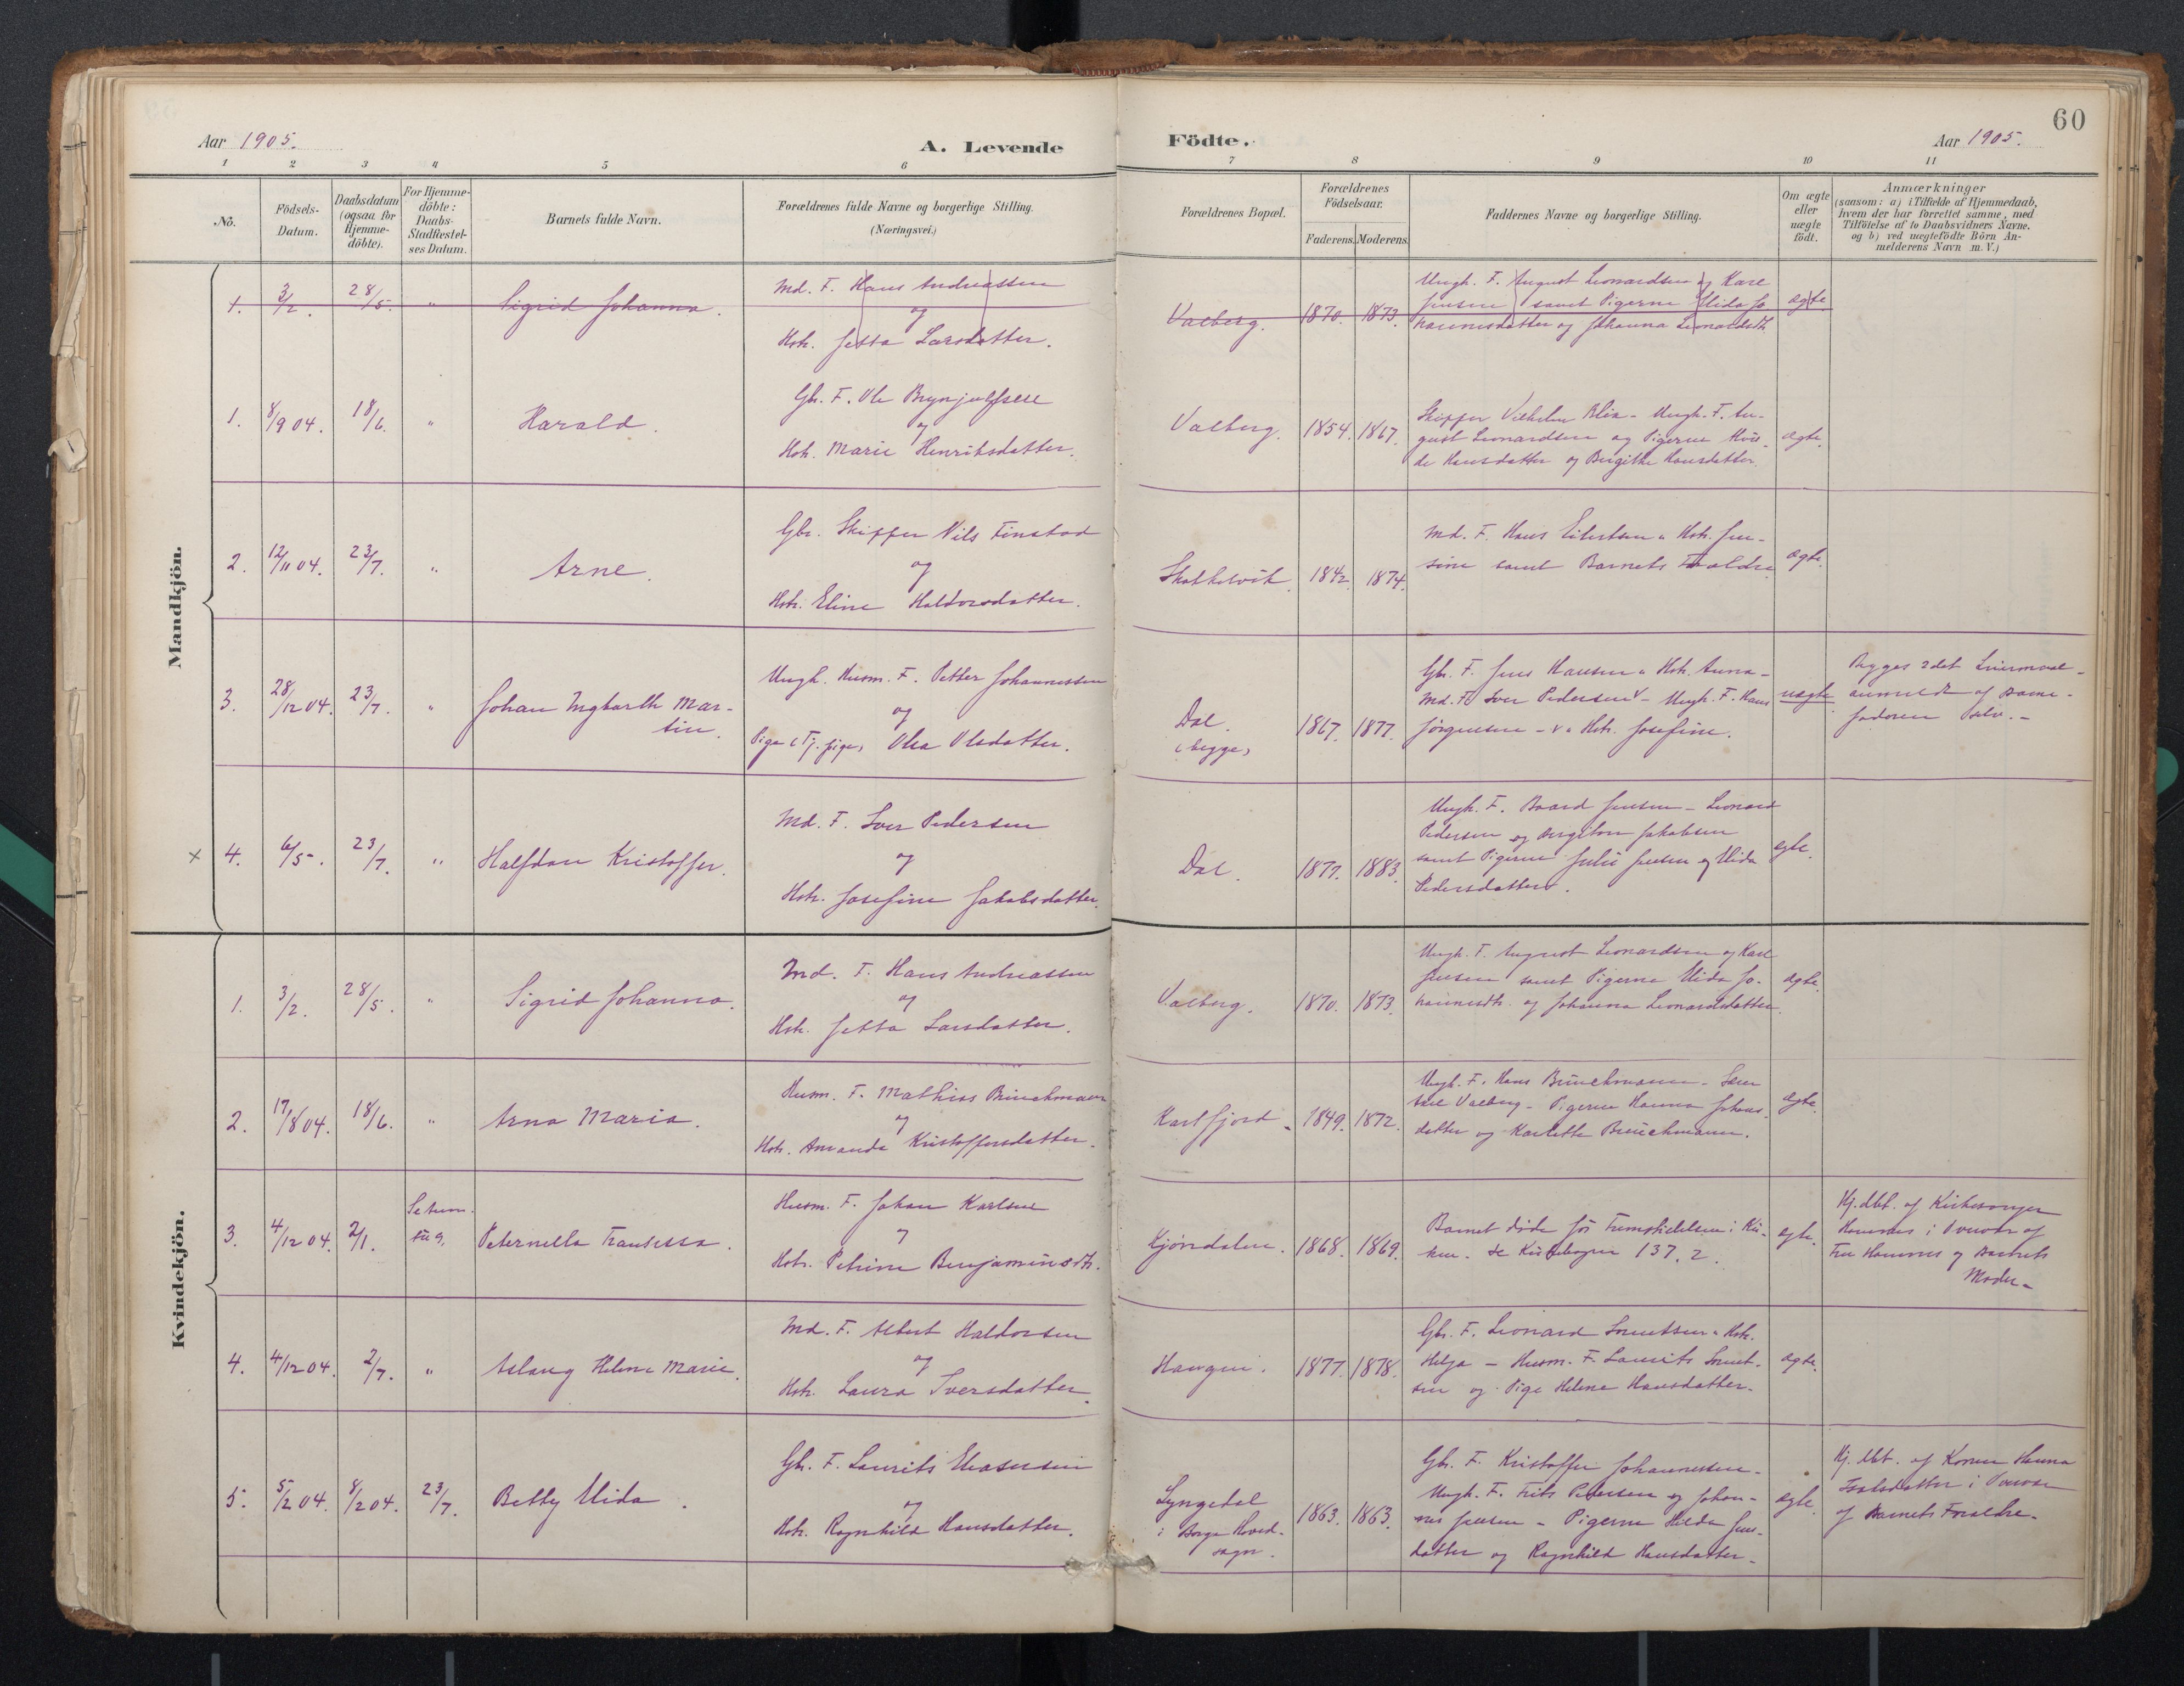 60
Aar 1905.
A. Levende
Födte.
Aar 1905.
1 2 3 4 5 6 7 8 9 10 11
No.
Födsels-
Datum.
Daabsdatum
(ogsaa for
Hjemme-
döbte).
For Hjemme-
döbte:
Daabs-
Stadfæstel-
ses Datum.
Barnets fulde Navn.
Forældrenes fulde Navne og borgerlige Stilling.
(Næringsvei.)
Forældrenes Bopæl.
Forældrenes
Födselsaar.
Faderens. Moderens.
Faddernes Navne og borgerlige Stilling.
Om ægte
eller
uægte
födt.
Anmærkninger
(saasom: a) i Tilfælde af Hjemmedaab,
hvem der har forrettet samme, med
Tilföielse af to Daabsvidners Navne.
og b) ved uægtefödte Börn An-
melderens Navn m. V.)
Mandkjön.
1. 3/2. 28/5. " Sigrid Johanna.
Md. F. Hans Andreassen
og
Hst. Jetta Larsdatter.
Valberg. 1870. 1873.
Ungk. F. August Leonardsen og Karl
Jensen samt Pigerne Alida Jo
hannesdatter og Johanna Leonardsdtr.
ægte.
1. 8/9 04. 18/6. " Harald.
Gbr. F. Ole Brynjulfsen
og
Hst. Marie Henriksdatter.
Valberg. 1854. 1867.
Skipper Vilhelm Blix - Ungk. F. Au-
gust Leonardsen og Pigerne
Hansdatter og Birgithe Hansdatter.
ægte.
2. 12/11 04. 23/7. " Arne.
Gbr. Skipper Nils Finstad
og
Hst. Eline Haldorsdatter.
Skatkelvik. 1842. 1874.
Md. F. Hans Eilertsen " Hst. Jen-
sine samt Barnets Forældre
ægte.
3. 28/12 04. 23/7. " Johan Ingbarth Mar-
tin.
Ungk. Husm. F. Petter Johannessen
og
Pige (Tj. pige) Olea Olsdatter.
Dal.
(begge)
1867. 1877.
Gbr. F. Jens Hansen " Hst. Anna -
Md. F. Iver Pedersen - Ungk. F. Hans
Jörgensen - " Hst. Josefine.
uægte
Begges 2det Leiermaal -
anmeldt af Barne-
faderen selv. -
× 4. 6/5. 23/7. " Halfdan Kristoffer.
Md. F. Iver Pedersen
og
Hst. Josefine Jakobsdatter.
Dal. 1877. 1883.
Ungk. F. Baard Jensen - Leonard
Pedersen og Angelom Jakobsen
samt Pigerne Julie Jensen og Alida
Pedersdatter.
ægte.
Kvindekjön.
1. 3/2. 28/5. " Sigrid Johanna.
Md. F. Hans Andreassen
og
Hst. Jetta Larsdatter.
Valberg. 1870. 1873.
Ungk. F. August Leonardsen og Karl
Jensen samt Pigerne Alida Jo-
hannesdtr. og Johanna Leonardsdatter.
ægte.
2. 17/8 04. 18/6. " Arna Maria.
Husm. F. Mathias Brinchmann
og
Hst. Amanda Kristoffersdatter.
Karlfjord. 1849. 1872.
Ungk. F. Hans Brinchmann -
Valberg - Pigerne Hanna Johans-
datter og Karlotte Brinchmann.
ægte.
3. 4/12 04. 2/1. Peternella Transessa.
Husm. F. Johan Karlsen
og
Hst. Petrine Benjaminsdtr.
Kjöndalen. 1868. 1869.
Barnet döde för Fremstillelsen i Kir-
ken. Se Kirkebogen 137. 2.
ægte.
Hj. dbt. af Kirkesanger
Hamnes i Overvær af
Fru Hamnes og Barnets
Moder -
4. 4/12 04. 2/7. " Aslaug Helene Marie.
Md. F. Albert Haldorsen
og
Hst. Laura Iversdatter.
Haugen. 1877. 1878.
Gbr. F. Leonard Lorentsen " Hst.
Helga - Husm. F. Laurits Lorent-
sen og Pige Helene Hansdatter.
ægte.
5. 5/2 04. 8/2 04. 23/7. Betty Alida.
Gbr. F. Laurits Eliassen
og
Hst. Ragnhild Hansdatter.
Lyngedal
i Borge Hoved-
sogn.
1863. 1863.
Gbr. F. Kristoffer Johannessen -
Ungk. F. Frits Petersen og Johan-
nes Jensen - Pigerne Hilda Jens-
datter og Ragnhild Hansdatter.
ægte.
Hj. dbt. af Konen Hanna
Isaksdatter i Overvær
af Barnets Forældre.